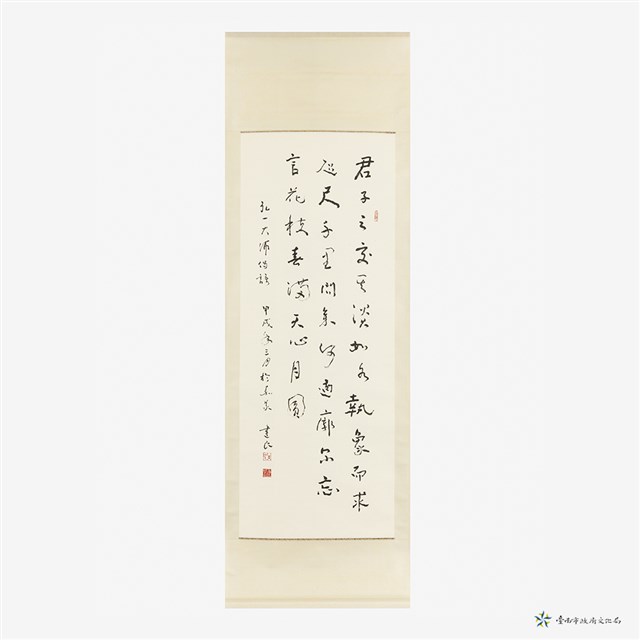 君子之交其淡如水執象而求
咫尺千里問余何適廓尔忘
言花枝春滿天心月圓
弘一大師偈語 甲戌年三月於
臺南市政府文化局